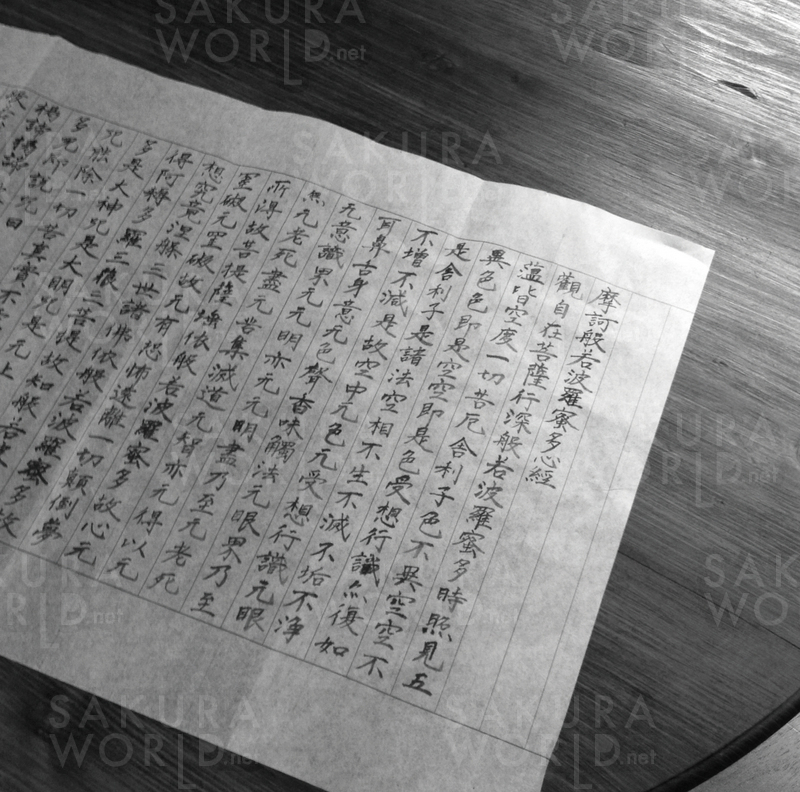 摩訶般若波羅蜜多心經
觀自在菩薩行深般若波羅蜜多時照見五
蘊皆空度一切苦厄舍利子色不異空空不
異色色即是空空即是色受想行識亦復如
是舍利子是諸法空相不生不滅不垢不浄
不增不減是故空中无色无受想行識无眼
耳鼻舌身意无色聲香味觸法无眼界乃至
无意識界无无明亦无无明盡乃至无老死
亦无老死盡无苦集滅道无智亦无得以无
所得故菩提薩埵依般若波羅蜜多故心无
罣礙无罣礙故无有恐怖遠離一切顛倒夢
想究竟涅槃三世諸佛依般若波羅蜜多故
得阿耨多羅三藐三菩提故知般若波
多是大神咒是大明咒是无上
咒能除一切苦真實不
多咒即説咒曰
揭諦揭諦
SAKURA
WORLD.net